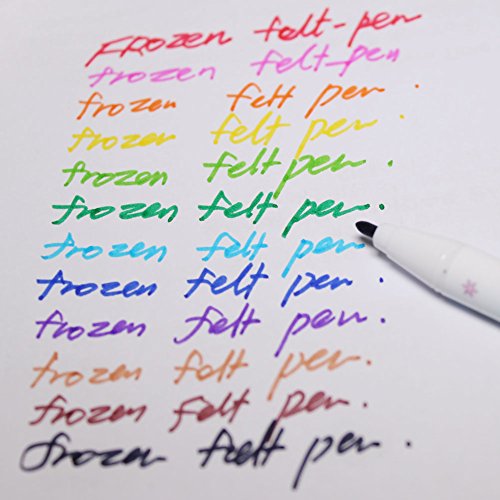 Frozen felt-pen
frozen felt-pen
frozen felt pen.
frozen felt pen.
frozen felt pen.
frozen felt pen.
frozen felt pen
frozen felt pen.
frozen felt pen.
frozen felt pen.
frozen felt pen.
frozen felt pen.